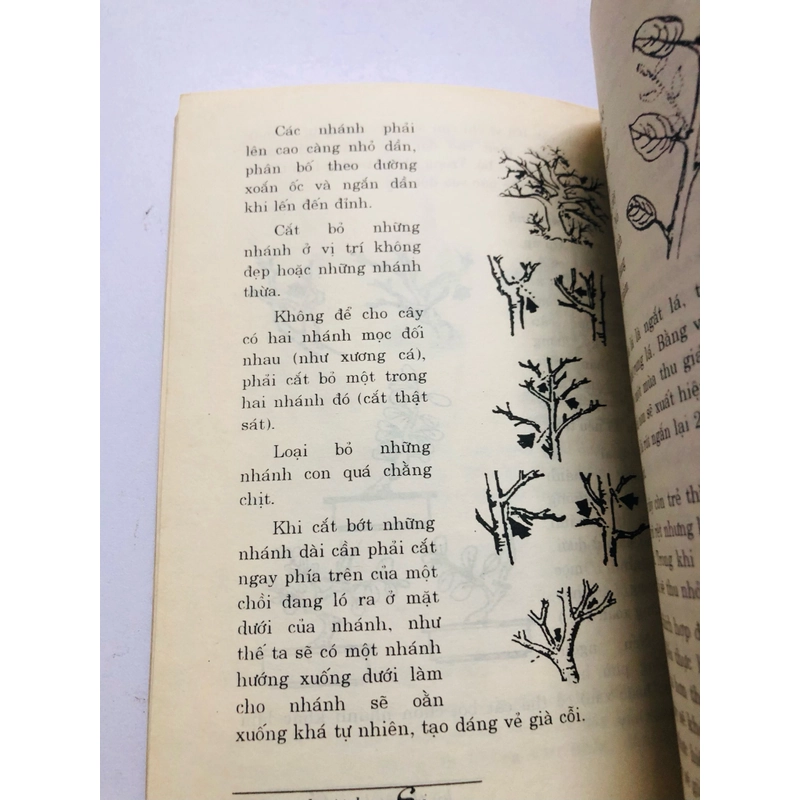 Các nhánh phải
lên cao càng nhỏ dần,
phân bố theo đường
xoắn ốc và ngắn dần
khi lến đến đỉnh.
Cắt bỏ những
nhánh ở vị trí không
đẹp hoặc những nhánh
thừa.
Không để cho cây
có hai nhánh mọc đối
nhau (như xương cá),
phải cắt bỏ một trong
hai nhánh đó (cắt thật
sát).
Loại bỏ những
nhánh con quá chằng
chịt.
Khi cắt bớt những
nhánh dài cần phải cắt
ngay phía trên của một
chồi đang ló ra ở mặt
dưới của nhánh, như
thế ta sẽ có một nhánh
hướng xuống dưới làm
cho nhánh sẽ oằn
xuống khá tự nhiên, tạo dáng vẻ già cỗi.
là ngắt lá,
lá. Bằng
mùa thu
sẽ xuất
ngắn lại 2
còn trẻ
nhưng
Trong khi
thu nhỏ
hợp